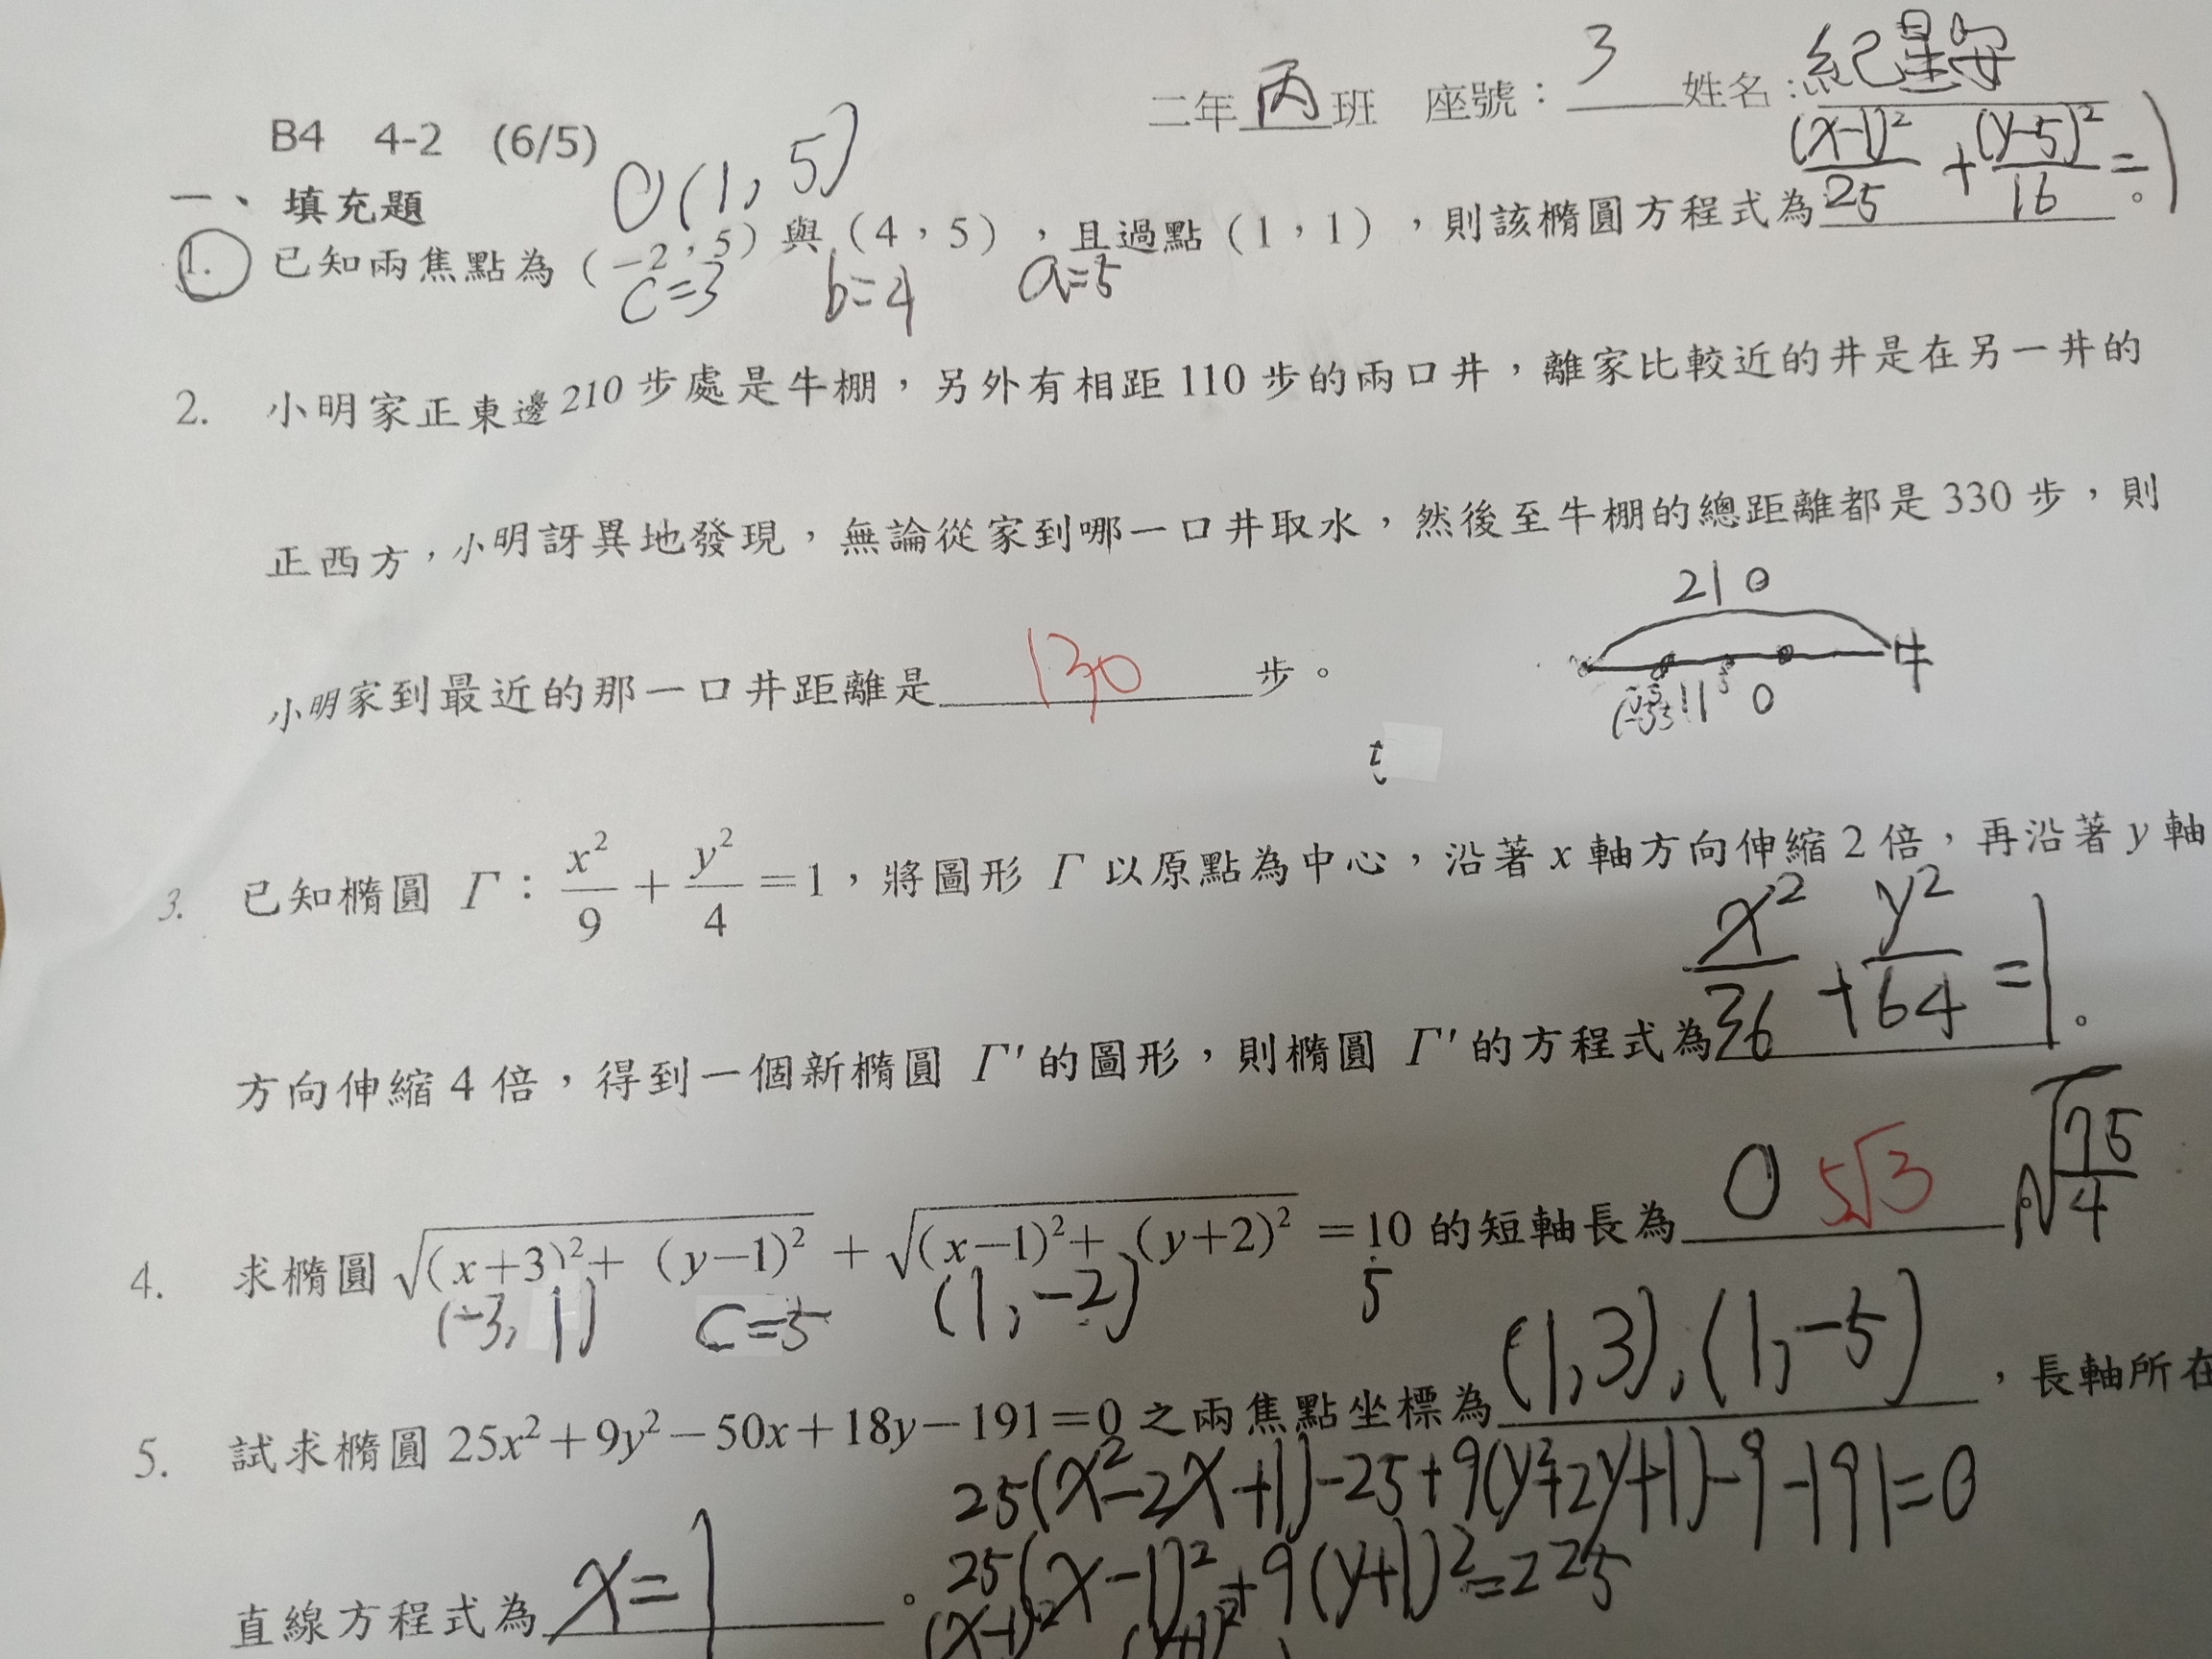 二年丙班 座號：3 姓名：紀星安
B4 4-2 (6/5)
一、填充題
O(1,5)
(x-1)²/25 + (y-5)²/16 = 1
1. 已知兩焦點為（-2，5）與（4，5），且過點（1，1），則該橢圓方程式為＿＿＿。
c=3 b=4 a=5
2. 小明家正東邊210步處是牛棚，另外有相距110步的兩口井，離家比較近的井是在另一井的
正西方，小明訝異地發現，無論從家到哪一口井取水，然後至牛棚的總距離都是330步，則
小明家到最近的那一口井距離是130步。
210
牛
110
t
3. 已知橢圓 Γ：x²/9 + y²/4 = 1，將圖形 Γ 以原點為中心，沿著 x 軸方向伸縮2倍，再沿著 y 軸
方向伸縮4倍，得到一個新橢圓 Γ′的圖形，則橢圓 Γ′的方程式為 x²/36 + y²/64 = 1。
4. 求橢圓 √((x+3)²+(y-1)²) + √((x-1)²+(y+2)²) = 10 的短軸長為 0 5√3
√(75/4)
(-3,1) c=5 (1,-2) 5
5. 試求橢圓 25x²+9y²-50x+18y-191=0 之兩焦點坐標為(1,3),(1,-5)，長軸所在
25(x²-2x+1)-25+9(y²+2y+1)-9-191=0
直線方程式為 x=1。
25(x-1)²+9(y+1)²=225
(x-1)² (y+1)²